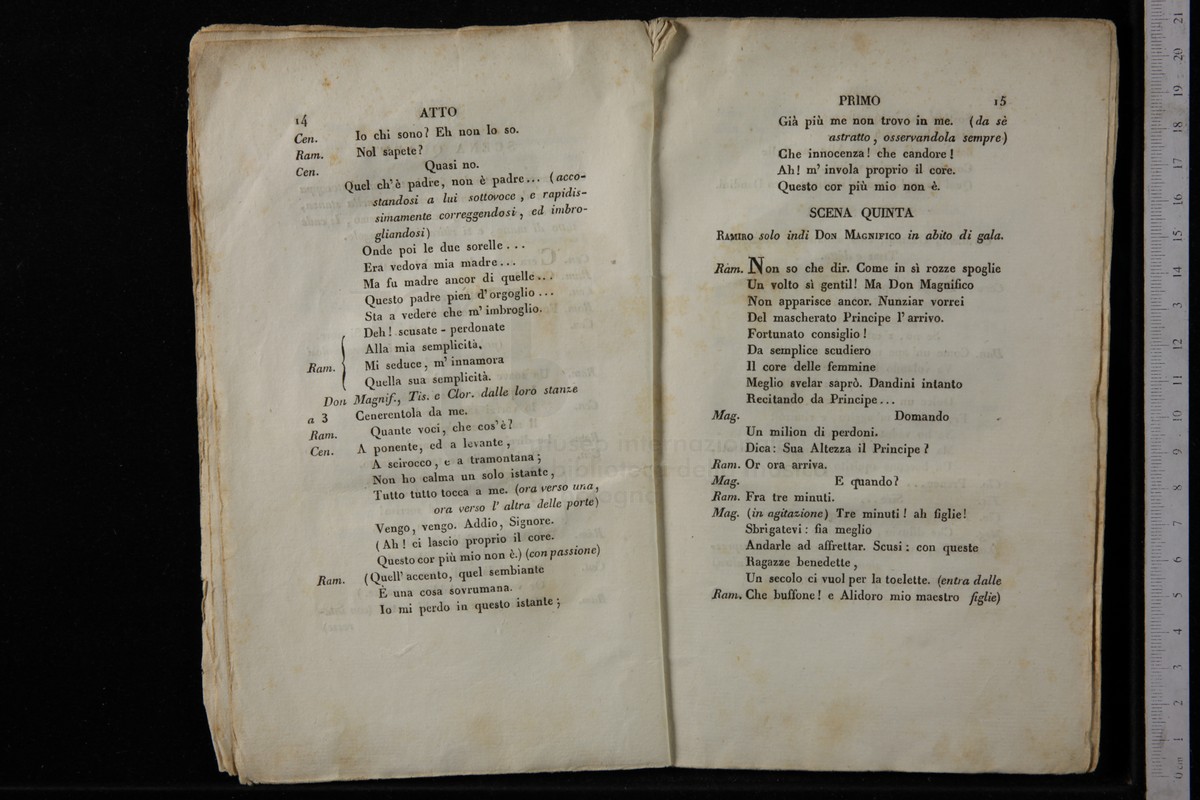 14
ATTO
Cen. Io chi sono? Eh non lo so.
Ram. Nol sapete?
Cen. Quasi no.
Quel ch'è padre, non è padre... (acco-
standosi a lui sottovoce, e rapidis-
simamente correggendosi, ed imbro-
gliandosi)
Onde poi le due sorelle...
Era vedova mia madre...
Ma fu madre ancor di quelle...
Questo padre pien d'orgoglio...
Sta a vedere che m'imbroglio.
Deh! scusate - perdonate
Alla mia semplicità.
Ram. Mi seduce, m'innamora
Quella sua semplicità.
Don Magnif., Tis. e Clor. dalle loro stanze
a 3 Cenerentola da me.
Ram. Quante voci, che cos'è?
Cen. A ponente, ed a levante,
A scirocco, e a tramontana;
Non ho calma un solo istante,
Tutto tutto tocca a me. (ora verso una,
ora verso l'altra delle porte)
Vengo, vengo. Addio, Signore.
(Ah! ci lascio proprio il core.
Questo cor più mio non è.) (con passione)
Ram. (Quell'accento, quel sembiante
È una cosa sovrumana.
Io mi perdo in questo istante;
PRIMO
15
Già più me non trovo in me. (da sè
astratto, osservandola sempre)
Che innocenza! che candore!
Ah! m'invola proprio il core.
Questo cor più mio non è.
SCENA QUINTA
RAMIRO solo indi DON MAGNIFICO in abito di gala.
Ram. Non so che dir. Come in sì rozze spoglie
Un volto sì gentil! Ma Don Magnifico
Non apparisce ancor. Nunziar vorrei
Del mascherato Principe l'arrivo.
Fortunato consiglio!
Da semplice scudiero
Il core delle femmine
Meglio svelar saprò. Dandini intanto
Recitando da Principe...
Mag. Domando
Un milion di perdoni.
Dica: Sua Altezza il Principe?
Ram. Or ora arriva.
Mag. E quando?
Ram. Fra tre minuti.
Mag. (in agitazione) Tre minuti! ah figlie!
Sbrigatevi: fia meglio
Andarle ad affrettar. Scusi: con queste
Ragazze benedette,
Un secolo ci vuol per la toelette. (entra dalle
Ram. Che buffone! e Alidoro mio maestro figlie)